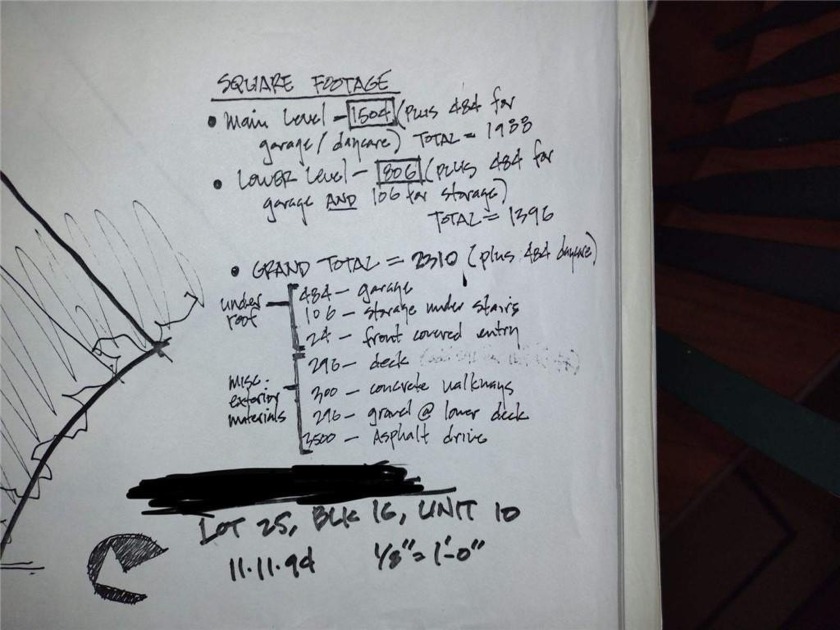 SQUARE FOOTAGE
• Main Level - 1504 (PLUS 484 for
garage/daycare) TOTAL = 1988
• LOWER Level - 806 (PLUS 484 for
garage AND 106 for storage)
TOTAL = 1396
• GRAND TOTAL = 2310 (plus 484 daycare)
under
roof
484 - garage
106 - storage under stairs
24 - front covered entry
296 - deck
misc:
exterior
materials
300 - concrete walkways
296 - gravel @ lower deck
3500 - Asphalt drive
LOT 25, BLK 16, UNIT 10
11.11.94 1/8" = 1'-0"